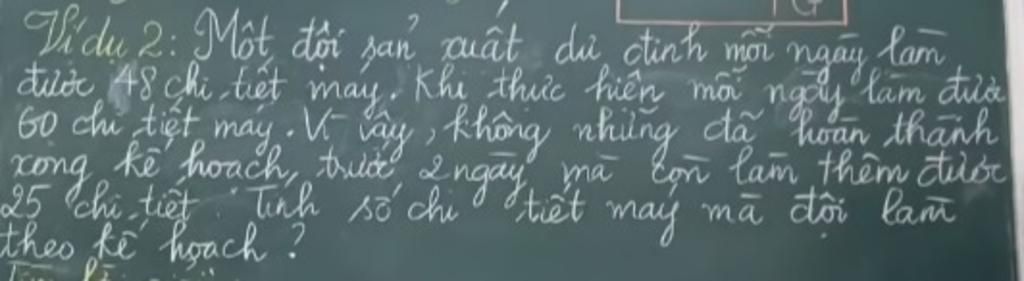 Ví dụ 2: Một đội sản xuất dự định mỗi ngày làm
được 48 chi tiết máy. Khi thực hiện mỗi ngày làm được
60 chi tiết máy. Vì vậy, không những đã hoàn thành
xong kế hoạch, trước 2 ngày mà còn làm thêm được
25 chi tiết. Tính số chi tiết máy mà đội làm
theo kế hoạch?